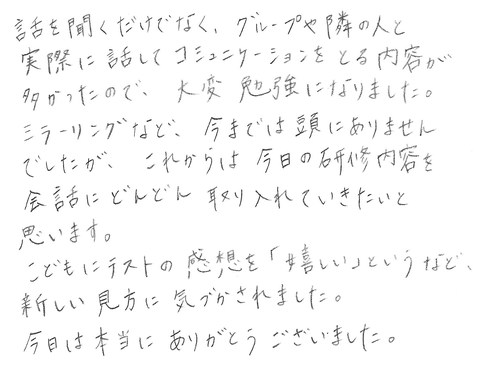 話を聞くだけでなく、グループや隣の人と
実際に話してコミュニケーションをとる内容が
多かったので、大変勉強になりました。
ミラーリングなど、今までは頭にありません
でしたが、これからは今日の研修内容を
会話にどんどん取り入れていきたいと
思います。
こどもにテストの感想を「嬉しい」というなど、
新しい見方に気づかされました。
今日は本当にありがとうございました。